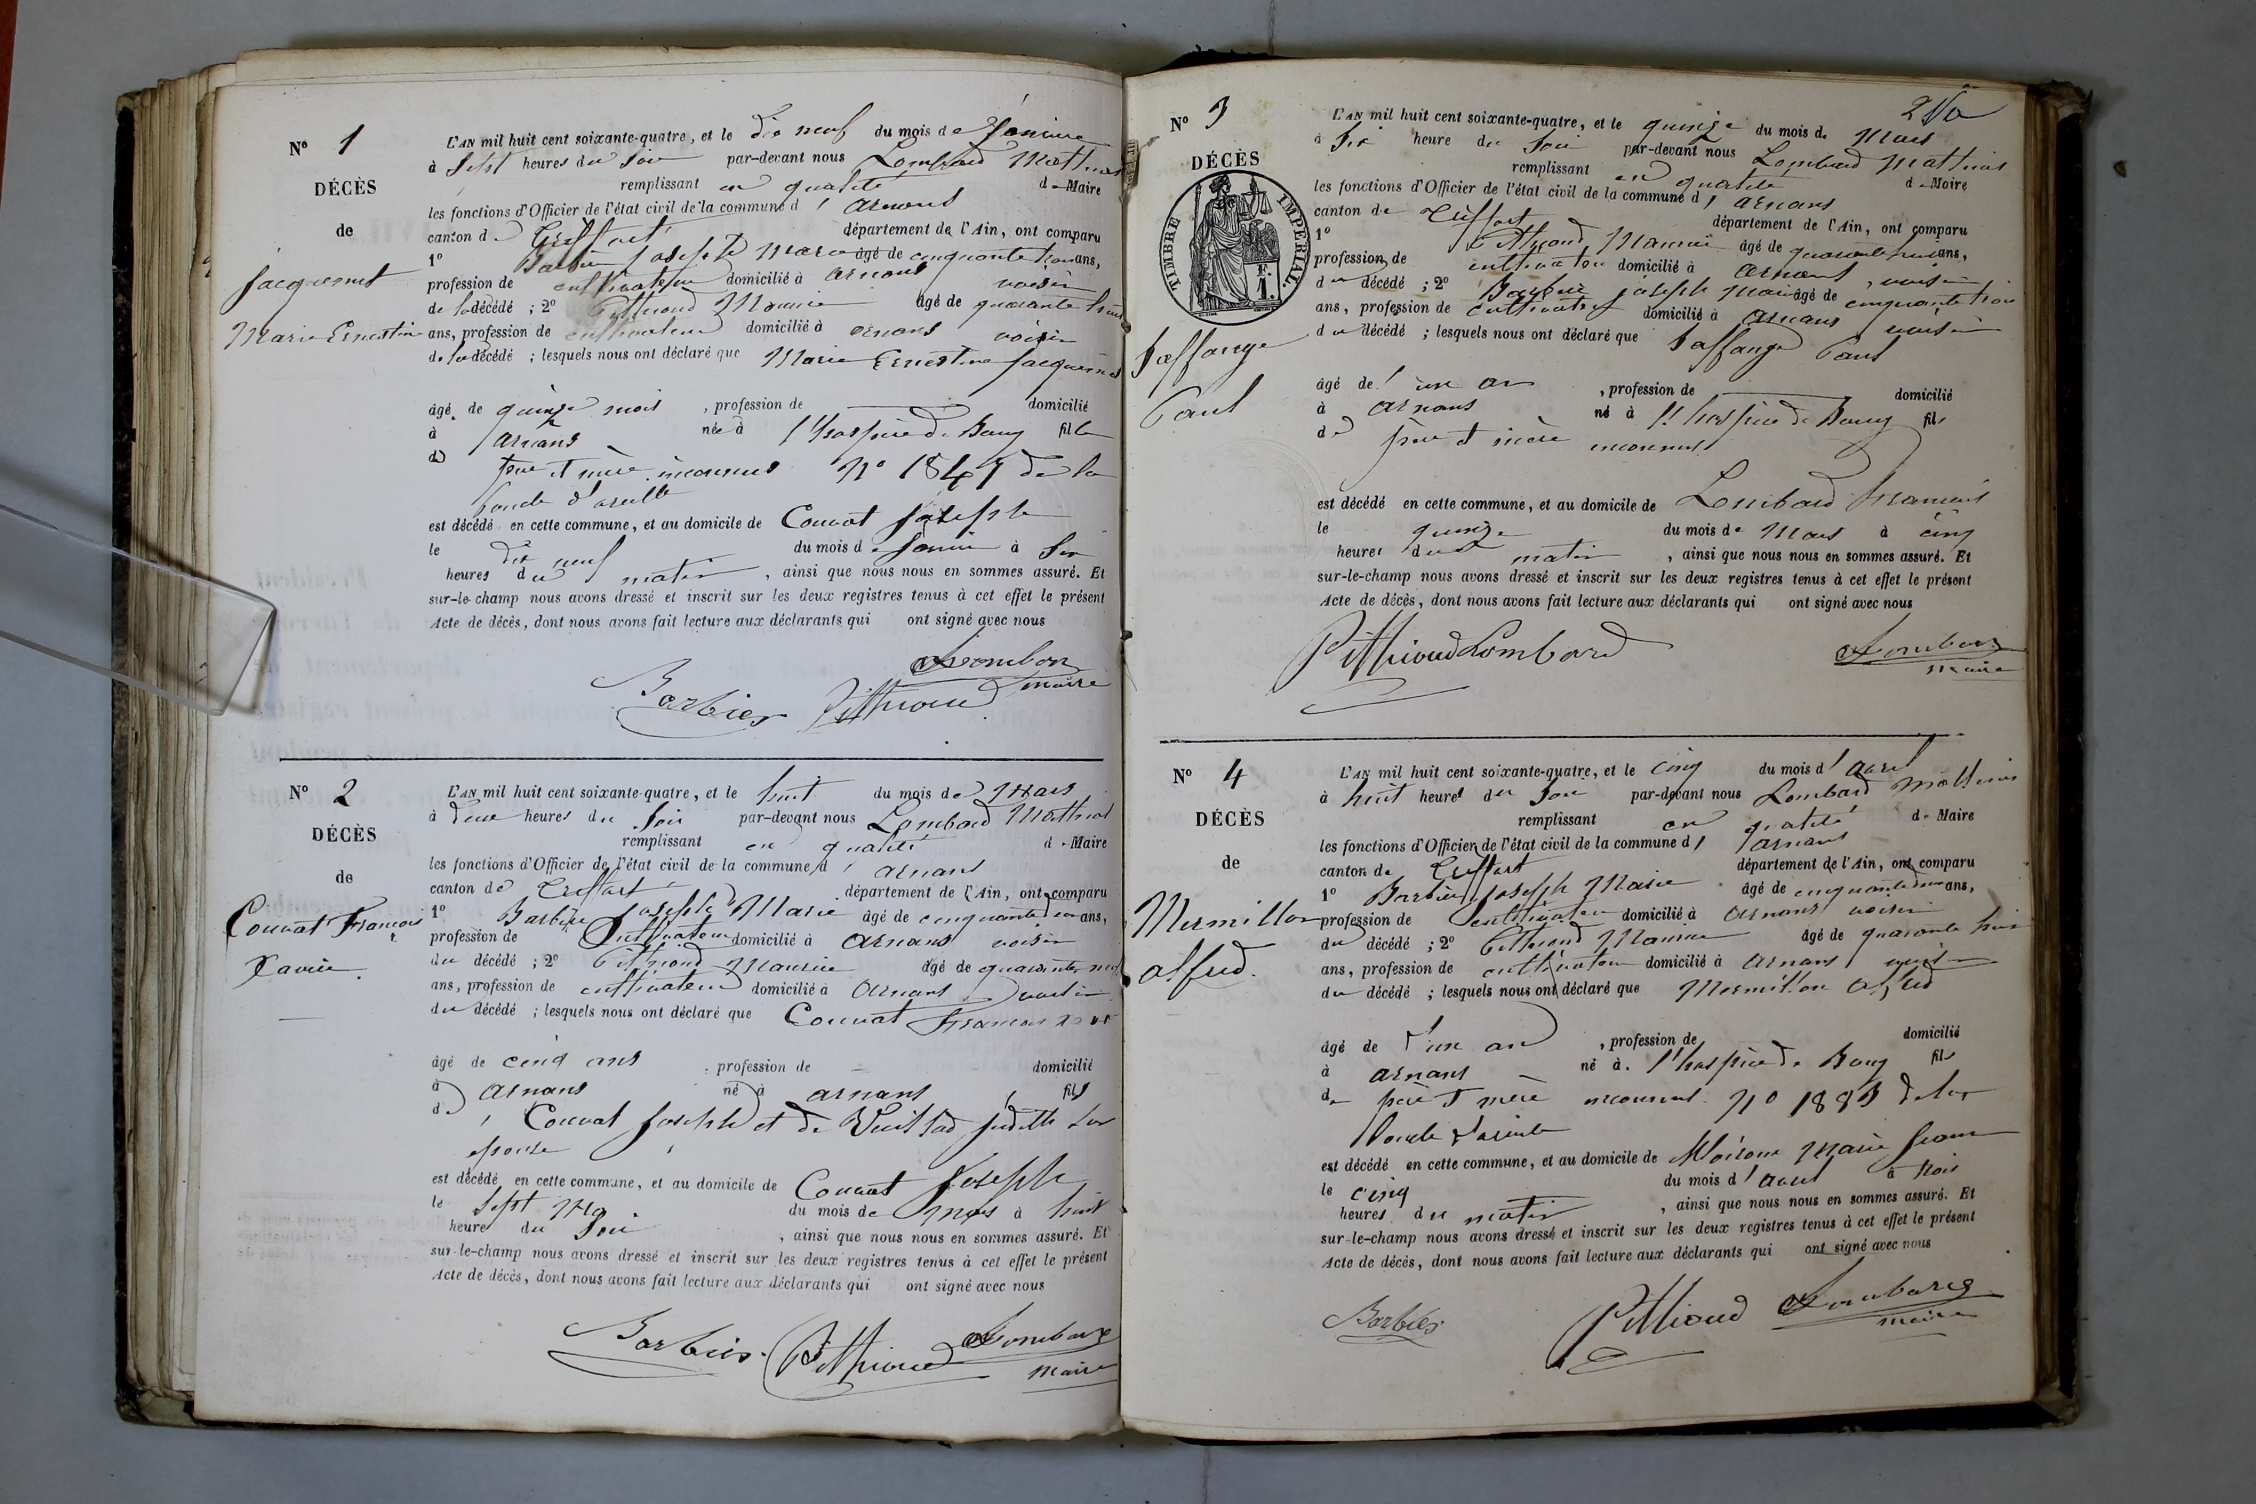 N° 1
DÉCÈS
de
Jacquemet
Marie Ernestine
L'AN mil huit cent soixante-quatre, et le dix neuf du mois de Janvier
à Sept heures du Soir par-devant nous Lombard Mathieu
remplissant en qualité de Maire
les fonctions d'Officier de l'état civil de la commune d'Arnans
canton de Treffort département de l'Ain, ont comparu
1° Barbier Joseph Marie âgé de cinquante trois ans,
profession de cultivateur domicilié à Arnans voisin
de la décédé ; 2° Pithioud Maurice âgé de quarante huit
ans, profession de cultivateur domicilié à Arnans voisin
de la décédé ; lesquels nous ont déclaré que Marie Ernestine Jacquemet
âgé de quinze mois , profession de domicilié
à Arnans née à l'hospice de Bourg fille
de père et mère inconnus N° 1847 de la
boucle d'oreille
est décédé en cette commune, et au domicile de Couvat Joseph
le dix neuf du mois de Janvier à Six
heures du matin , ainsi que nous nous en sommes assuré. Et
sur-le-champ nous avons dressé et inscrit sur les deux registres tenus à cet effet le présent
Acte de décès, dont nous avons fait lecture aux déclarants qui ont signé avec nous
Lombard
maire
Barbier Pithioud
N° 2
DÉCÈS
de
Couvat François
Xavier
L'AN mil huit cent soixante-quatre, et le huit du mois de Mars
à deux heures du Soir par-devant nous Lombard Mathieu
remplissant en qualité de Maire
les fonctions d'Officier de l'état civil de la commune d'Arnans
canton de Treffort département de l'Ain, ont comparu
1° Barbier Joseph Marie âgé de cinquante ans,
profession de Cultivateur domicilié à Arnans voisin
du décédé ; 2° Pithioud Maurice âgé de quarante
ans, profession de cultivateur domicilié à Arnans voisin
du décédé ; lesquels nous ont déclaré que Couvat François
âgé de cinq ans , profession de domicilié
à Arnans né à Arnans fils
de Couvat Joseph et de Vuillod Judith Son
épouse
est décédé en cette commune, et au domicile de Couvat Joseph
le Sept du mois de Mars à huit
heure du Soir , ainsi que nous nous en sommes assuré. Et
sur-le-champ nous avons dressé et inscrit sur les deux registres tenus à cet effet le présent
Acte de décès, dont nous avons fait lecture aux déclarants qui ont signé avec nous
Barbier Pithioud Lombard
maire
2
N° 3
DÉCÈS
TIMBRE IMPÉRIAL.
F.
1.
Jaffange
Paul
L'AN mil huit cent soixante-quatre, et le quinze du mois de Mars
à Six heure du Soir par-devant nous Lombard Mathieu
remplissant en qualité de Maire
les fonctions d'Officier de l'état civil de la commune d'Arnans
canton de Treffort département de l'Ain, ont comparu
1° Pithioud Maurice âgé de quarante huit ans,
profession de cultivateur domicilié à Arnans, voisin
du décédé ; 2° Barbier Joseph Marie âgé de cinquante trois
ans, profession de cultivateur domicilié à Arnans voisin
du décédé ; lesquels nous ont déclaré que Jaffange Paul
âgé de un an , profession de domicilié
à Arnans né à l'hospice de Bourg fils
de père et mère inconnus
est décédé en cette commune, et au domicile de Lombard François
le quinze du mois de Mars à cinq
heures du matin , ainsi que nous nous en sommes assuré. Et
sur-le-champ nous avons dressé et inscrit sur les deux registres tenus à cet effet le présent
Acte de décès, dont nous avons fait lecture aux déclarants qui ont signé avec nous
Pithioud Lombard Lombard
maire
N° 4
DÉCÈS
de
Mermillon
alfred.
L'AN mil huit cent soixante-quatre, et le cinq du mois d'avril
à huit heures du Soir par-devant nous Lombard Mathieu
remplissant en qualité de Maire
les fonctions d'Officier de l'état civil de la commune d'Arnans
canton de Treffort département de l'Ain, ont comparu
1° Barbier Joseph Marie âgé de cinquante ans,
profession de cultivateur domicilié à Arnans voisin
du décédé ; 2° Pithioud Maurice âgé de quarante huit
ans, profession de cultivateur domicilié à Arnans voisin
du décédé ; lesquels nous ont déclaré que Mermillon alfred
âgé de d'un an , profession de domicilié
à Arnans né à l'hospice de Bourg fils
de père et mère inconnus N° 1883 de la
boucle d'oreille
est décédé en cette commune, et au domicile de Moiroux Marie Jeanne
le cinq du mois d'avril à trois
heures du matin , ainsi que nous nous en sommes assuré. Et
sur-le-champ nous avons dressé et inscrit sur les deux registres tenus à cet effet le présent
Acte de décès, dont nous avons fait lecture aux déclarants qui ont signé avec nous
Barbier Pithioud Lombard
maire